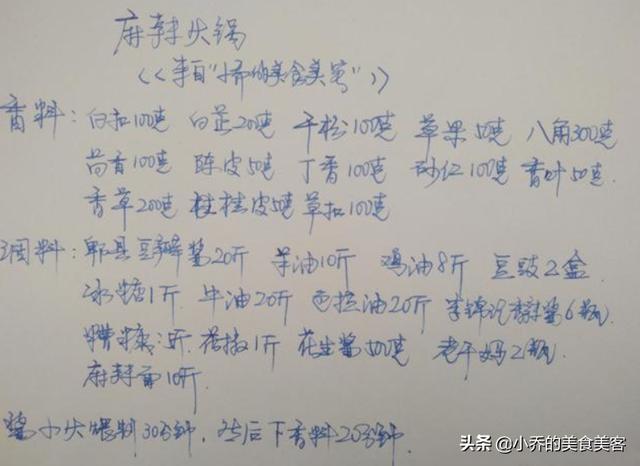 麻辣火锅
<<来自"小乔的美食美客">>
香料：白扣100克 白芷20克 千松100克 草果50克 八角300克
茴香100克 陈皮50克 丁香100克 砂仁100克 香叶50克
香草200克 桂皮50克 草扣100克
调料：郫县豆瓣酱20斤 羊油10斤 鸡油8斤 豆豉2盒
冰糖1斤 牛油20斤 色拉油20斤 李锦记 酱6瓶
糟辣 斤 花椒1斤 花生酱500克 老干妈2瓶
麻辣 10斤
酱小火 料30分钟，然后下香料20分钟
头条 @小乔的美食美客